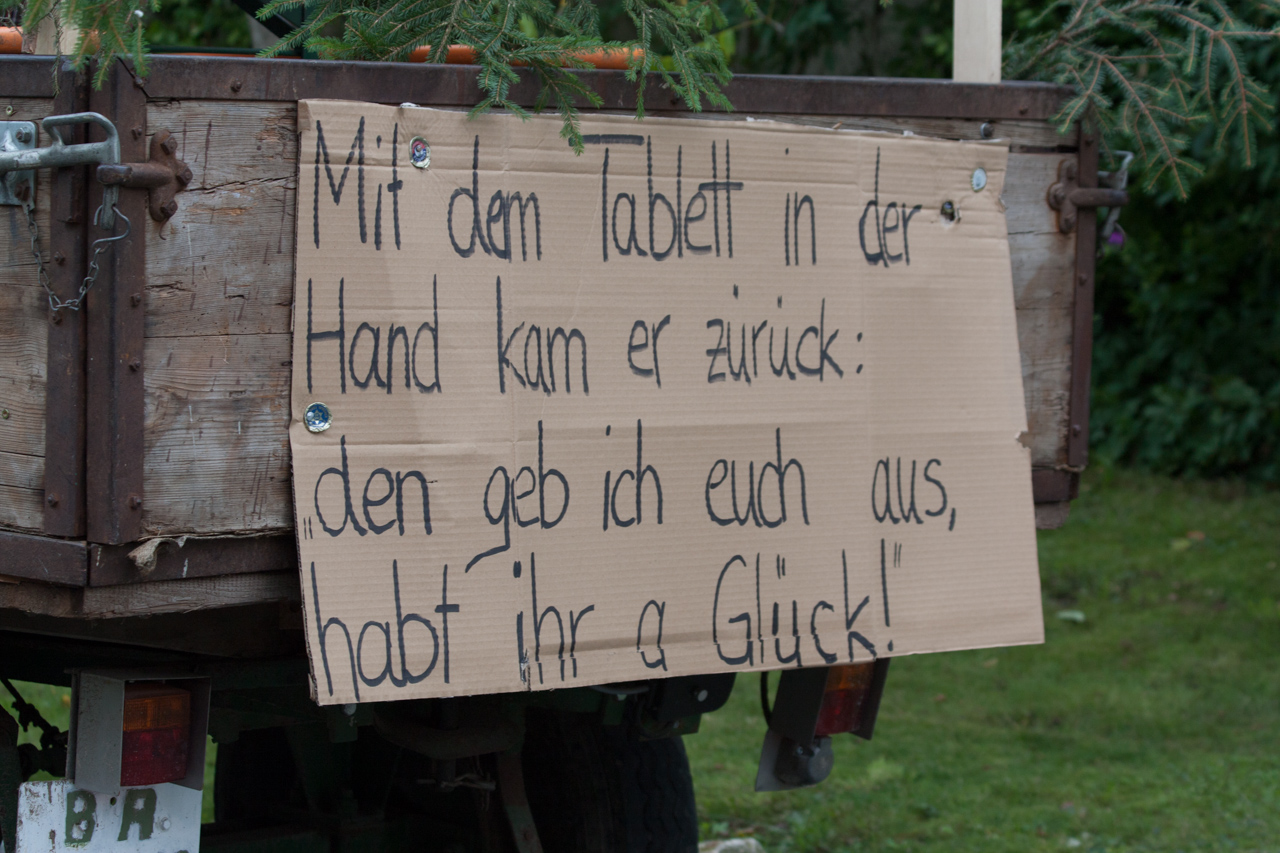 Mit dem Tablett in der
Hand kam er zurück:
„den geb ich euch aus,
habt ihr a Glück!"
BA